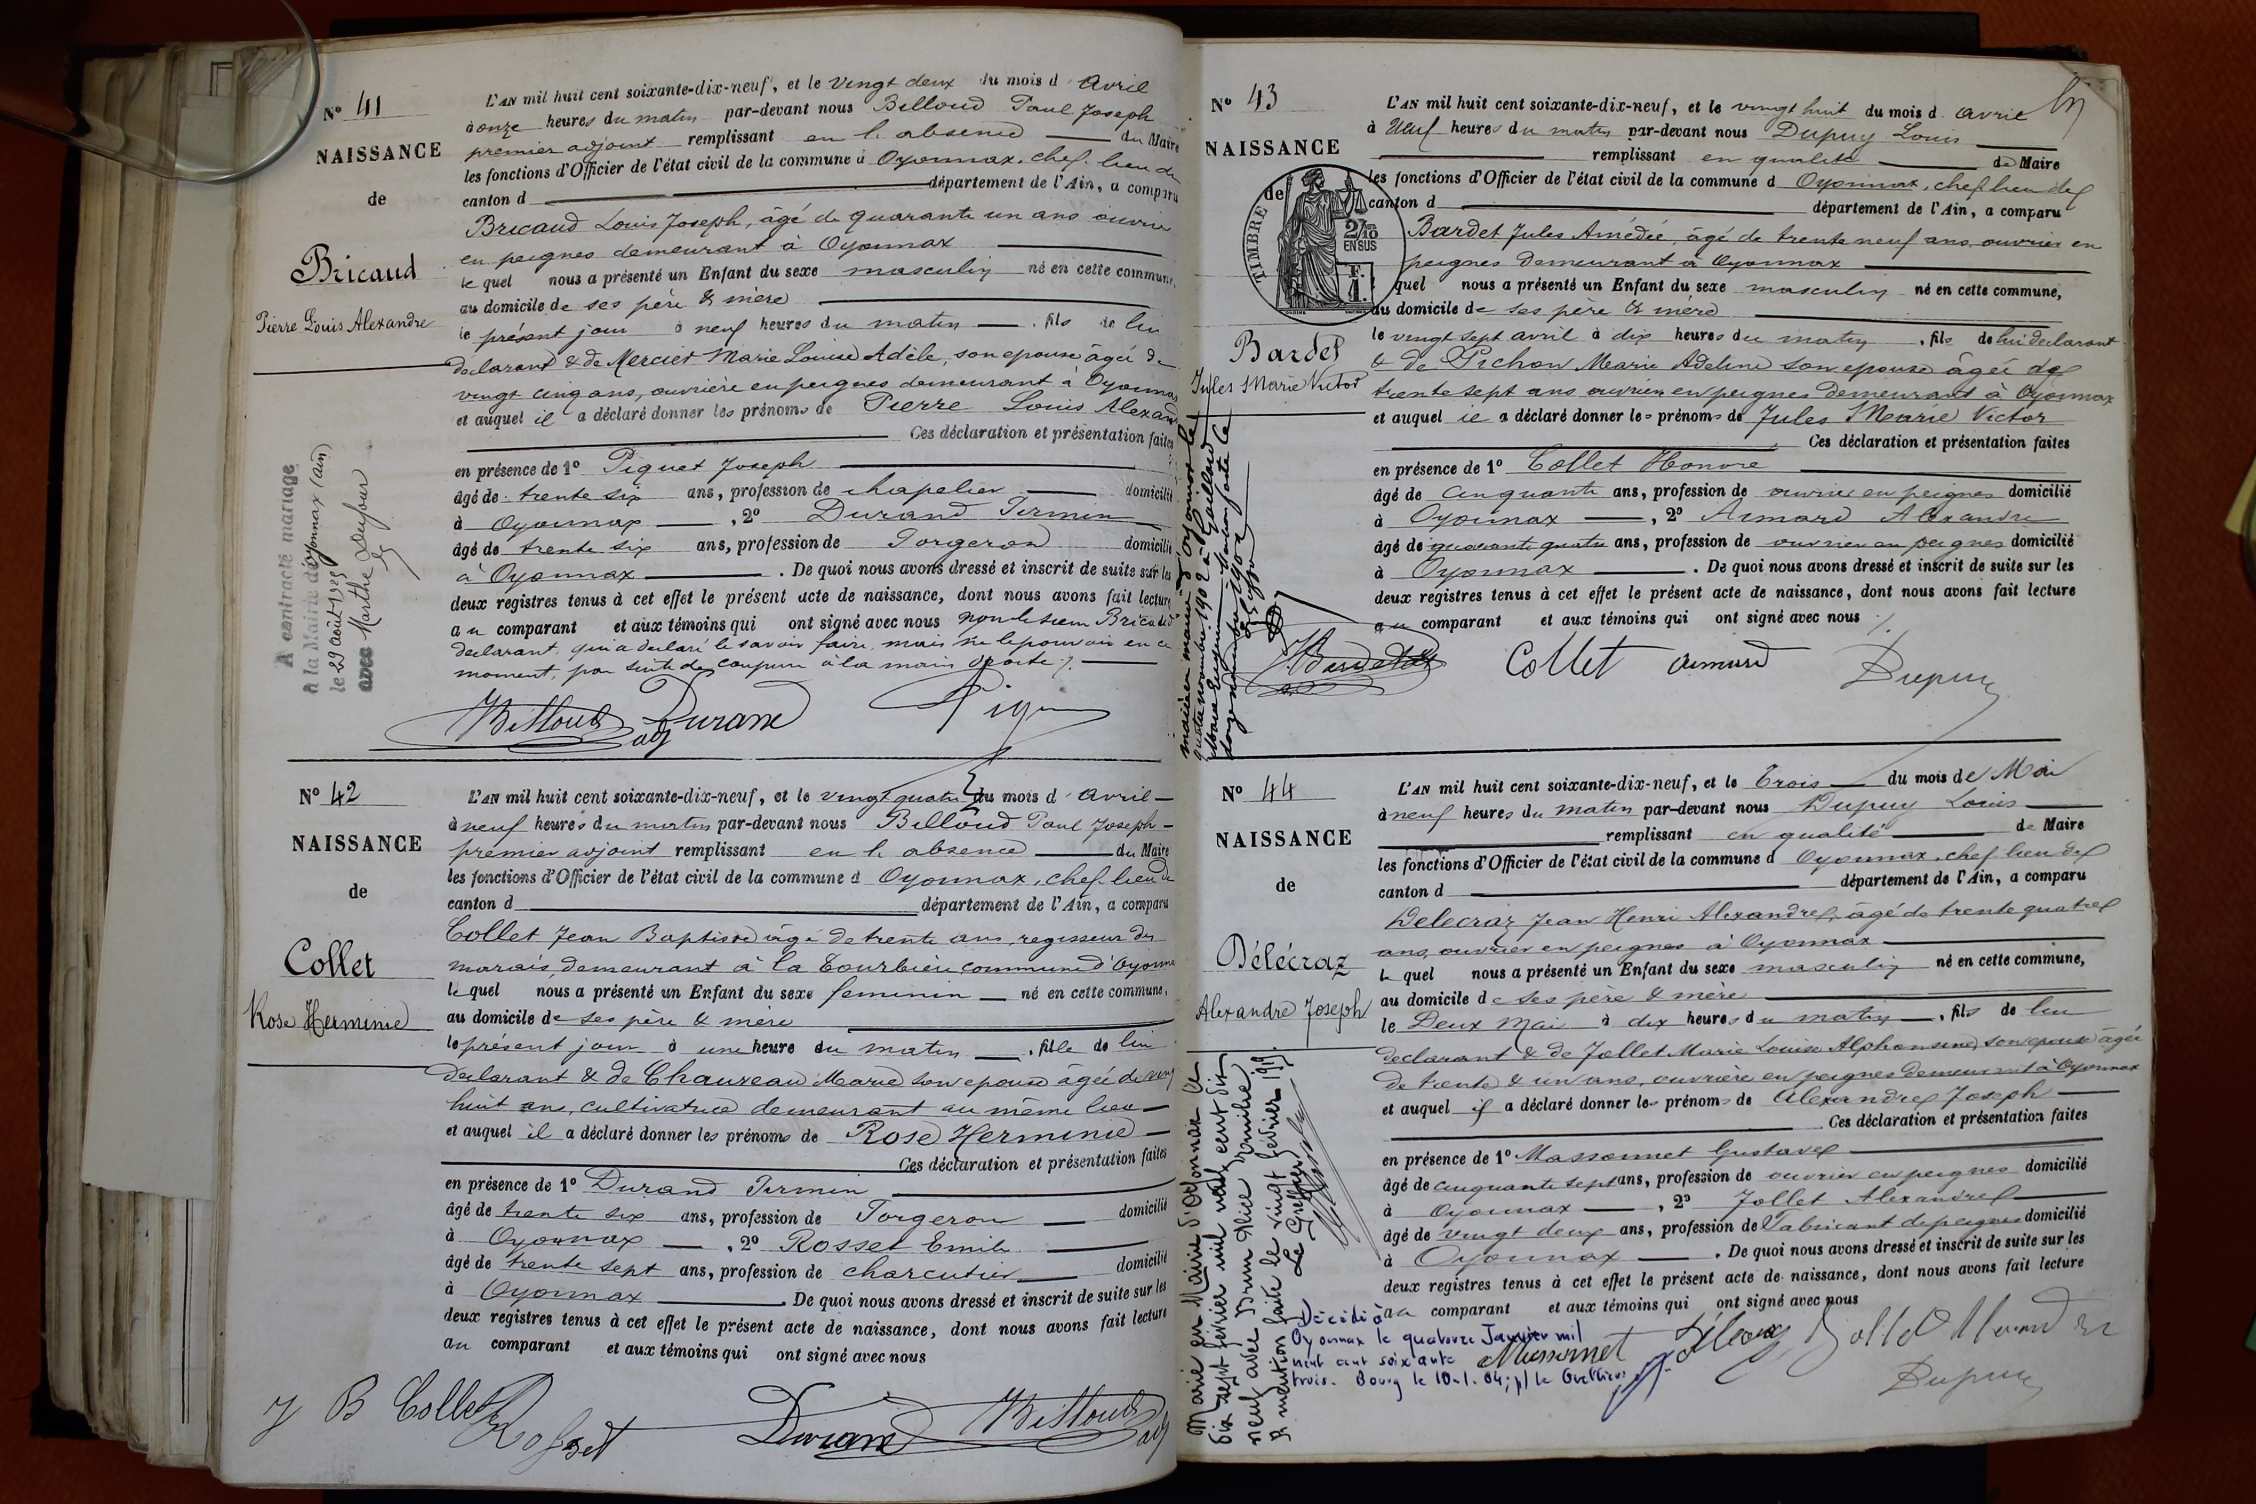 N° 41
NAISSANCE
de
Bricaud
Pierre Louis Alexandre
L'AN mil huit cent soixante-dix-neuf, et le vingt deux du mois d'Avril
à onze heures du matin par-devant nous Billoud Paul Joseph
premier adjoint remplissant en l'absence du Maire
les fonctions d'Officier de l'état civil de la commune d Oyonnax, chef lieu de
canton d département de l'Ain, a comparu
Bricaud Louis Joseph, âgé de quarante un ans ouvrier
en peignes demeurant à Oyonnax
le quel nous a présenté un Enfant du sexe masculin né en cette commune,
au domicile de ses père & mère
le présent jour à neuf heures du matin, fils de lui
declarant & de Mercier Marie Louise Adèle, son epouse âgée de
vingt cinq ans, ouvrière en peignes demeurant à Oyonnax
et auquel il a déclaré donner les prénoms de Pierre Louis Alexand
Ces déclaration et présentation faites
en présence de 1° Piquet Joseph
âgé de trente six ans, profession de chapelier domicilié
à Oyonnax, 2° Durand Firmin
âgé de trente six ans, profession de Forgeron domicilié
à Oyonnax. De quoi nous avons dressé et inscrit de suite sur les
deux registres tenus à cet effet le présent acte de naissance, dont nous avons fait lecture
au comparant et aux témoins qui ont signé avec nous non le sieur Bricaud
declarant, qui a declaré le savoir faire, mais ne le pouvoir en ce
moment, par suite de coupure à la main droite ./.
Billoud adj Durand Piquet
A contracté mariage
à la Mairie d'Oyonnax (ain)
le 29 août 1925
avec Marthe Dufour
N° 42
NAISSANCE
de
Collet
Rose Herminie
L'AN mil huit cent soixante-dix-neuf, et le vingt quatre du mois d'Avril
à neuf heures du matin par-devant nous Billoud Paul Joseph
premier adjoint remplissant en l'absence du Maire
les fonctions d'Officier de l'état civil de la commune d Oyonnax, chef-lieu de
canton d département de l'Ain, a comparu
Collet Jean Baptiste âgé de trente ans, regisseur des
marais, demeurant à la Tourbière commune d'Oyonna
le quel nous a présenté un Enfant du sexe feminin né en cette commune,
au domicile de ses père & mère
le présent jour à une heure du matin, fille de lui
declarant & de Chauzeau Marie son epouse âgée de vingt
huit ans, cultivatrice demeurant au même lieu
et auquel il a déclaré donner les prénoms de Rose Herminie
Ces déclaration et présentation faites
en présence de 1° Durand Firmin
âgé de trente six ans, profession de Forgeron domicilié
à Oyonnax, 2° Rosset Emile
âgé de trente sept ans, profession de charcutier domicilié
à Oyonnax. De quoi nous avons dressé et inscrit de suite sur les
deux registres tenus à cet effet le présent acte de naissance, dont nous avons fait lecture
au comparant et aux témoins qui ont signé avec nous
J B Collet Rosset Durand Billoud adj
N° 43
NAISSANCE
de
TIMBRE
2/10
EN SUS
F.
1.
Bardet
Jules Marie Victor
L'AN mil huit cent soixante-dix-neuf, et le vingt huit du mois d'avril
à Neuf heures du matin par-devant nous Dupuy Louis
remplissant en qualité de Maire
les fonctions d'Officier de l'état civil de la commune d Oyonnax, chef lieu de
canton d département de l'Ain, a comparu
Bardet Jules Amédée, âgé de trente neuf ans, ouvrier en
peignes demeurant à Oyonnax
quel nous a présenté un Enfant du sexe masculin né en cette commune,
au domicile de ses père & mère
le vingt sept avril à dix heures du matin, fils de lui declarant
& de Pichon Marie Adeline son epouse âgée de
trente sept ans ouvrière en peignes demeurant à Oyonnax
et auquel il a déclaré donner les prénoms de Jules Marie Victor
Ces déclaration et présentation faites
en présence de 1° Collet Honore
âgé de cinquante ans, profession de ouvrier en peignes domicilié
à Oyonnax, 2° Aimard Alexandre
âgé de quarante quatre ans, profession de ouvrier en peignes domicilié
à Oyonnax. De quoi nous avons dressé et inscrit de suite sur les
deux registres tenus à cet effet le présent acte de naissance, dont nous avons fait lecture
au comparant et aux témoins qui ont signé avec nous ./.
J. Bardet Collet Aimard Dupuy
marié en mairie d'Oyonnax le
quatre novembre 1902 à Gaillard
Marie Eugenie Mention faite le
douze novembre 1902
N° 44
NAISSANCE
de
Délécraz
Alexandre Joseph
L'AN mil huit cent soixante-dix-neuf, et le Trois du mois de Mai
à neuf heures du matin par-devant nous Dupuy Louis
remplissant en qualité de Maire
les fonctions d'Officier de l'état civil de la commune d Oyonnax, chef lieu de
canton d département de l'Ain, a comparu
Delecraz Jean Henri Alexandre, âgé de trente quatre
ans, ouvrier en peignes à Oyonnax
le quel nous a présenté un Enfant du sexe masculin né en cette commune,
au domicile de ses père & mère
le Deux Mai à dix heures du matin, fils de lui
declarant & de Jollet Marie Louise Alphonsine, son epouse âgée
de trente & un ans, ouvrière en peignes demeurant à Oyonnax
et auquel il a déclaré donner les prénoms de Alexandre Joseph
Ces déclaration et présentation faites
en présence de 1° Massonnet Gustave
âgé de cinquante sept ans, profession de ouvrier en peignes domicilié
à Oyonnax, 2° Jollet Alexandre
âgé de vingt deux ans, profession de Fabricant de peignes domicilié
à Oyonnax. De quoi nous avons dressé et inscrit de suite sur les
deux registres tenus à cet effet le présent acte de naissance, dont nous avons fait lecture
au comparant et aux témoins qui ont signé avec nous
Massonnet Jollet Alexandre
Dupuy
Marié en Mairie d'Oyonnax le
dix sept février mil neuf cent dix
neuf avec Brun Alice Emilie
D mention faite le vingt février 1919.
Le Greffier
Décédé à
Oyonnax le quatorze Janvier mil
neuf cent soixante
trois. Bourg le 10.1.64; p/ le Greffier